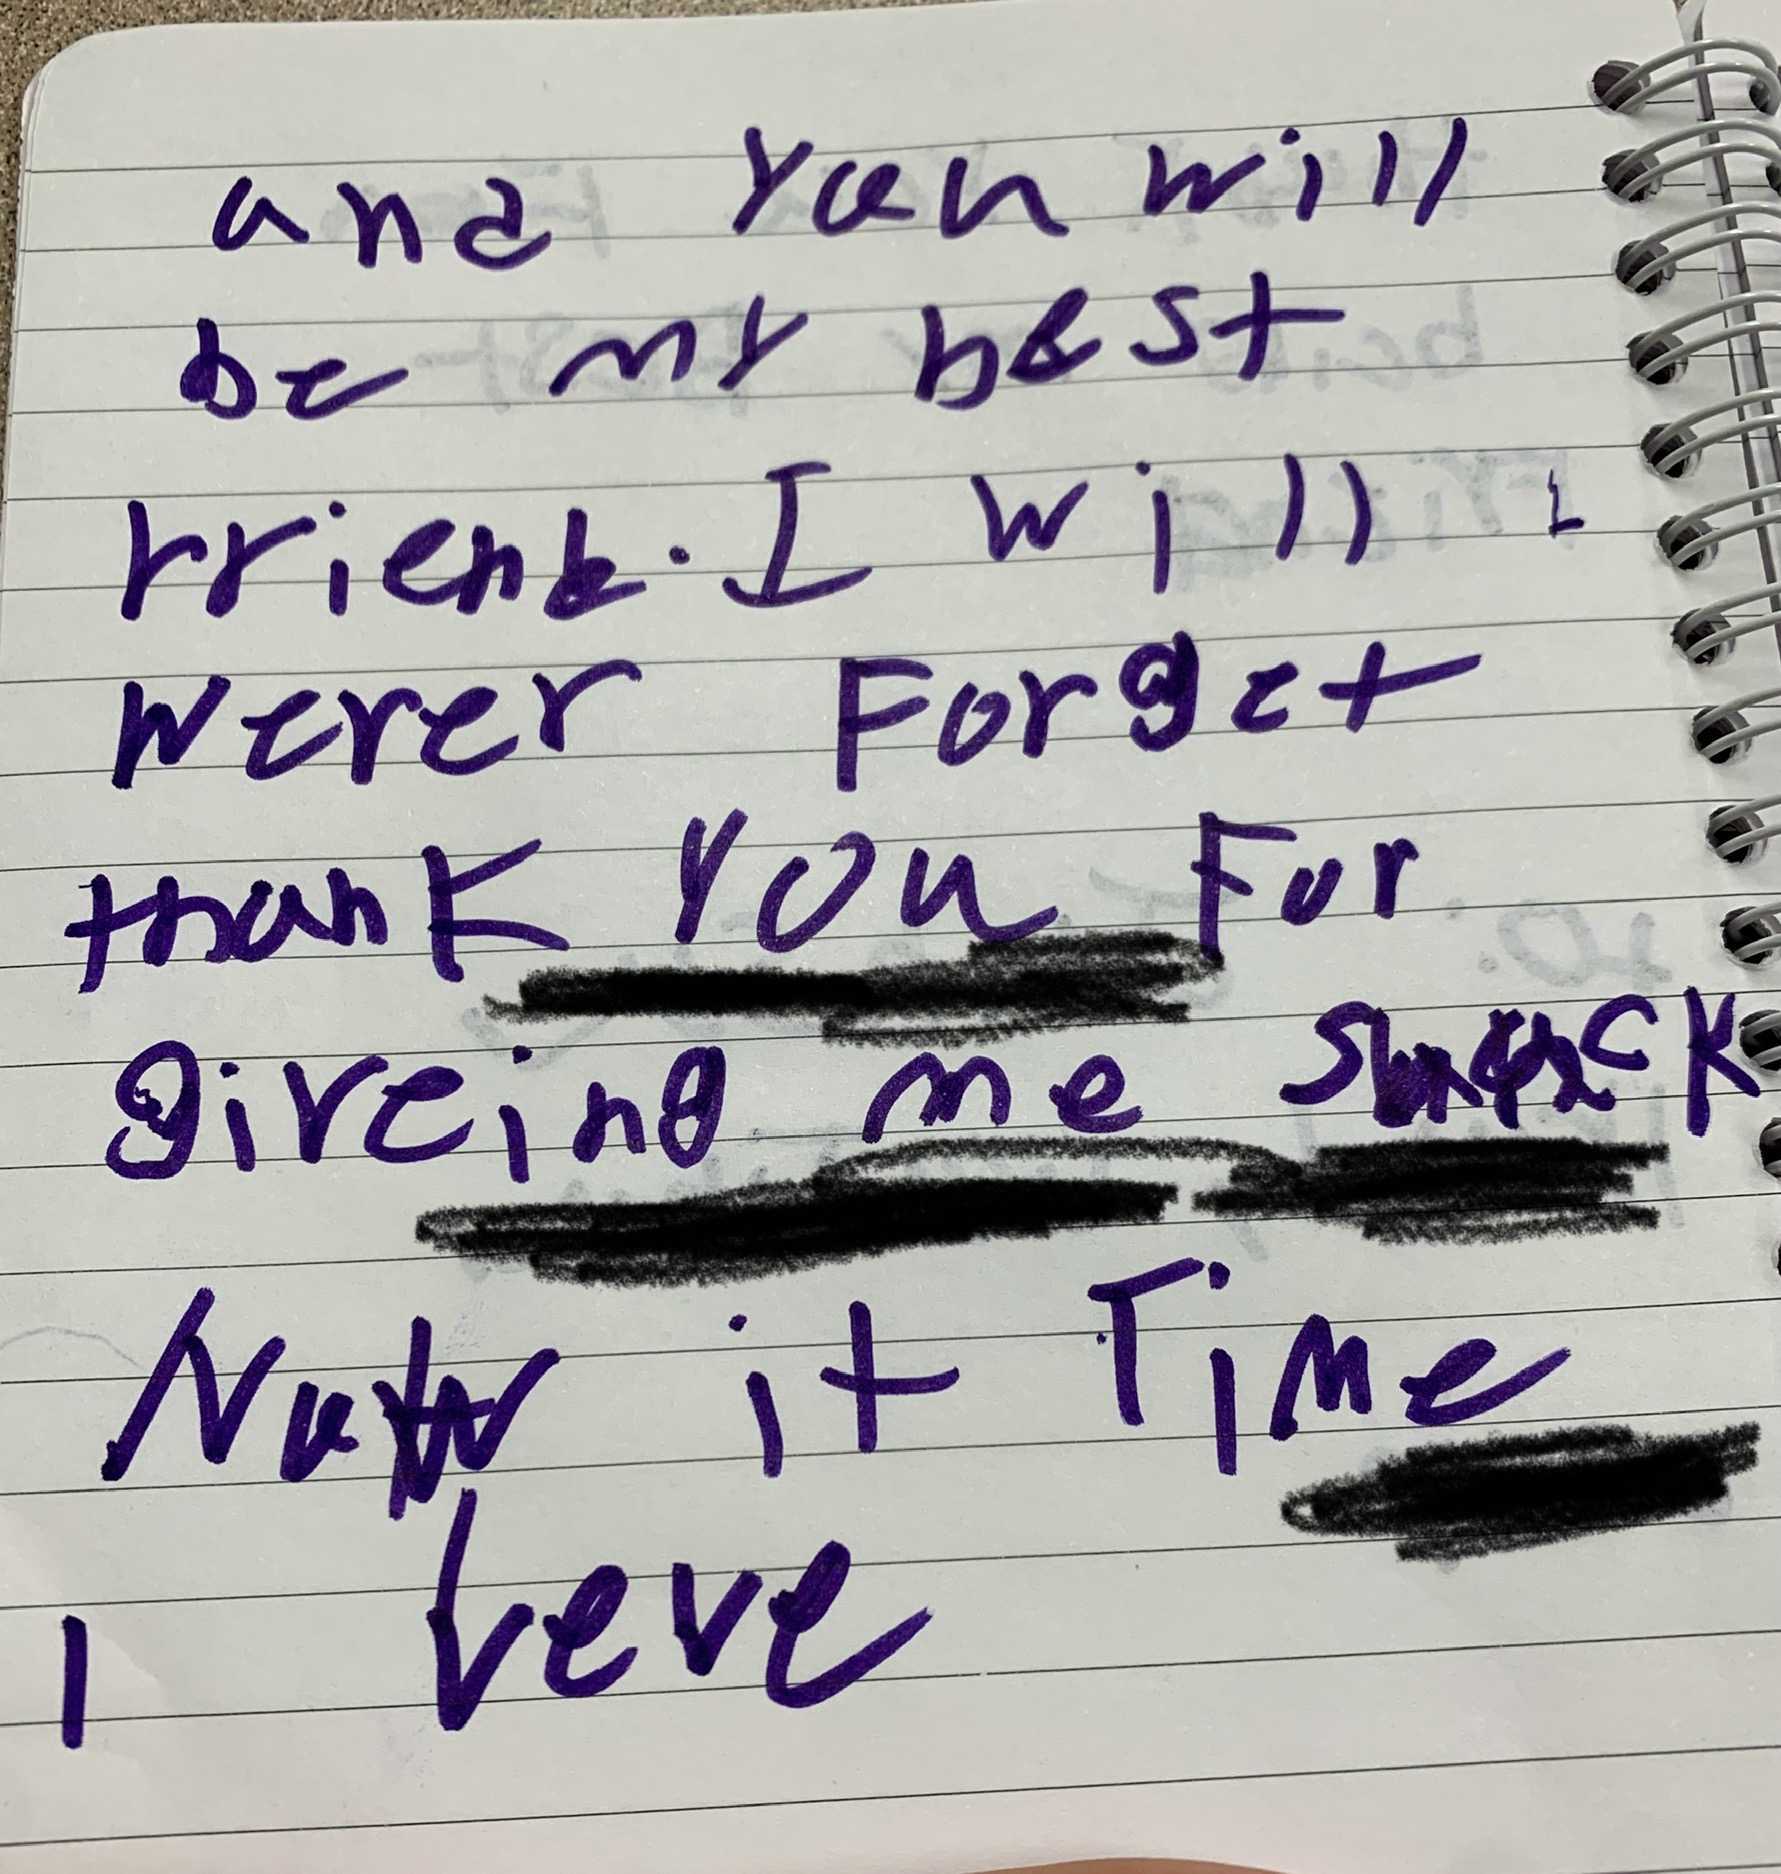 and you will
be my best
friend. I will
never Forget
thank you For
giveing me snack
Now it Time
I leve